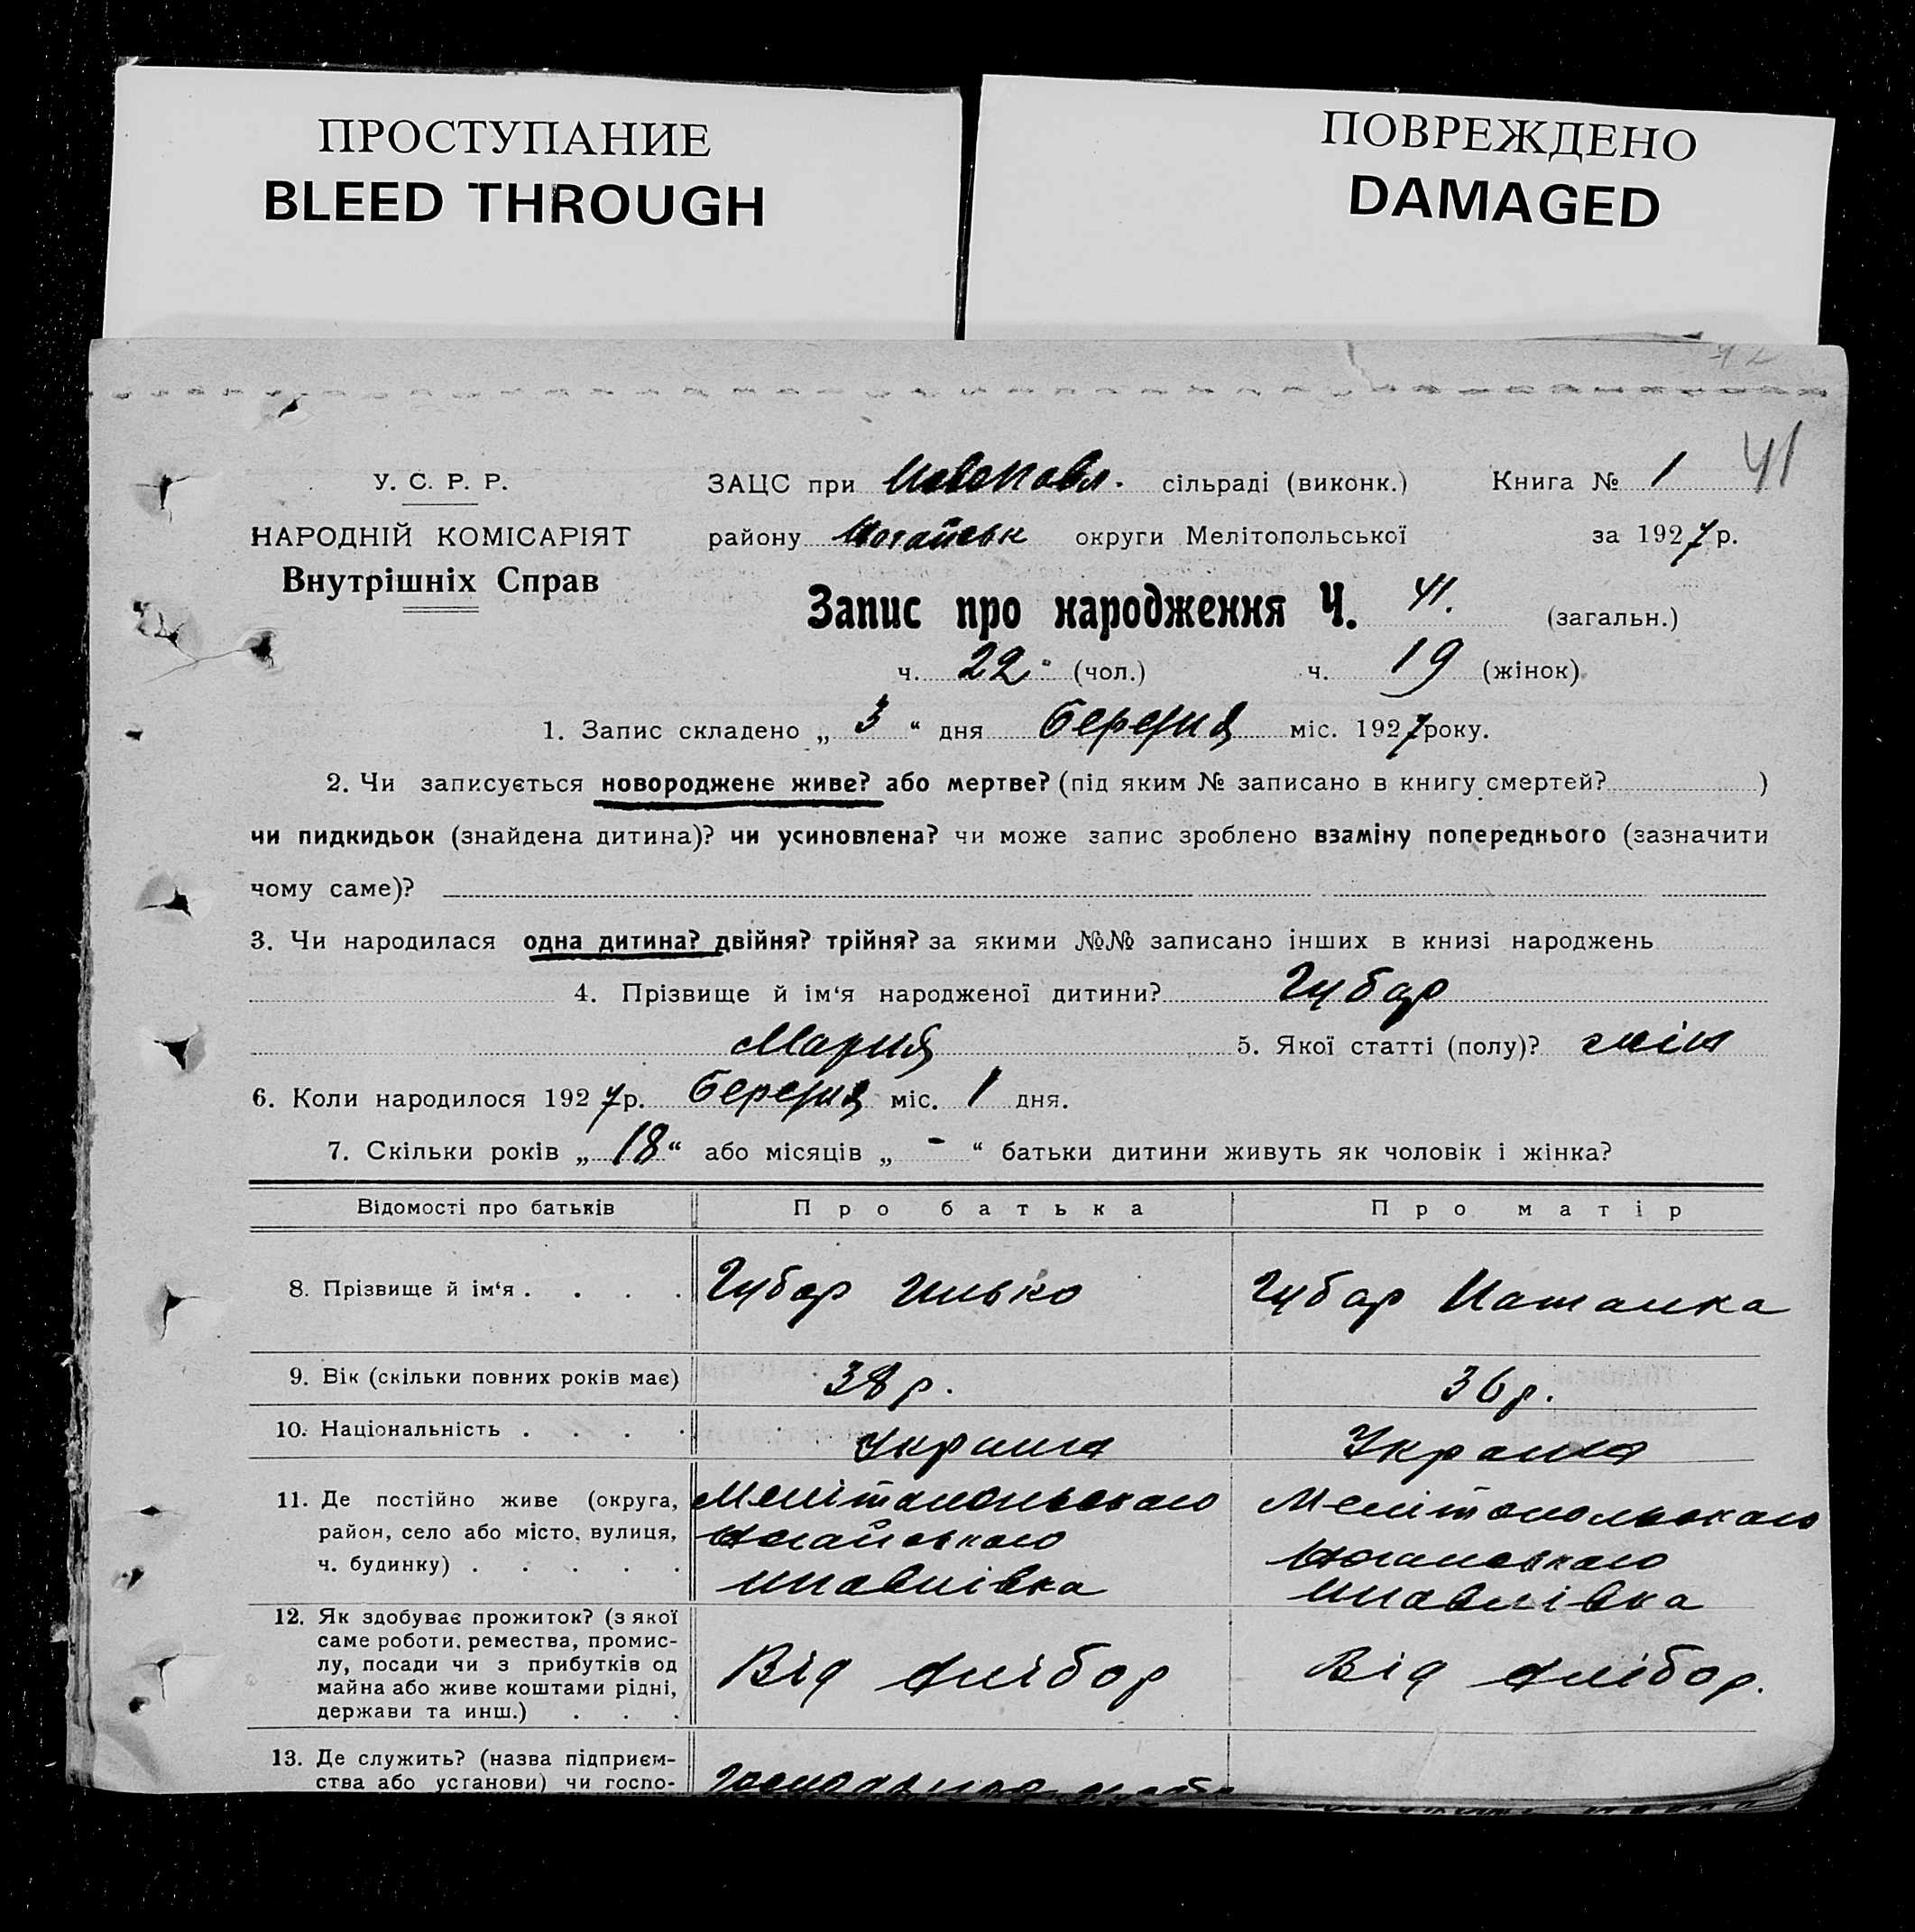 ПРОСТУПАНИЕ
BLEED THROUGH
ПОВРЕЖДЕНО
DAMAGED
41
У. С. Р. Р.
НАРОДНІЙ КОМІСАРІЯТ
Внутрішніх Справ
ЗАЦС при Новопавл. сільраді (виконк.) Книга № 1
району Ногайськ округи Мелітопольської за 1927 р.
Запис про народження Ч. 41. (загальн.)
ч. 22 (чол.) ч. 19 (жінок)
1. Запис складено „ 3 “ дня березня міс. 1927 року.
2. Чи записується новороджене живе? або мертве? (під яким № записано в книгу смертей? )
чи пидкидьок (знайдена дитина)? чи усиновлена? чи може запис зроблено взаміну попереднього (зазначити
чому саме)?
3. Чи народилася одна дитина? двійня? трійня? за якими №№ записано інших в книзі народжень
4. Прізвище й ім‘я народженої дитини? Губар
Мария 5. Якої статті (полу)? жін
6. Коли народилося 1927 р. березня міс. 1 дня.
7. Скільки років „ 18 “ або місяців „ - “ батьки дитини живуть як чоловік і жінка?
Відомості про батьків Про батька Про матір
8. Прізвище й ім‘я . . . . Губар Илько Губар Наталка
9. Вік (скільки повних років має) 38 р. 36 р.
10. Національність . . . . Украина Украина
11. Де постійно живе (округа, Мелітопольского Мелітопольского
район, село або місто, вулиця, Ногайського Ногайського
ч. будинку) . . . . . павлівка павлівка
12. Як здобуває прожиток? (з якої
саме роботи, ремества, промис-
лу, посади чи з прибутків од Від хлібор Від хлібор.
майна або живе коштами рідні,
держави та инш.) . . .
13. Де служить? (назва підприєм-
ства або установи) чи госпо-